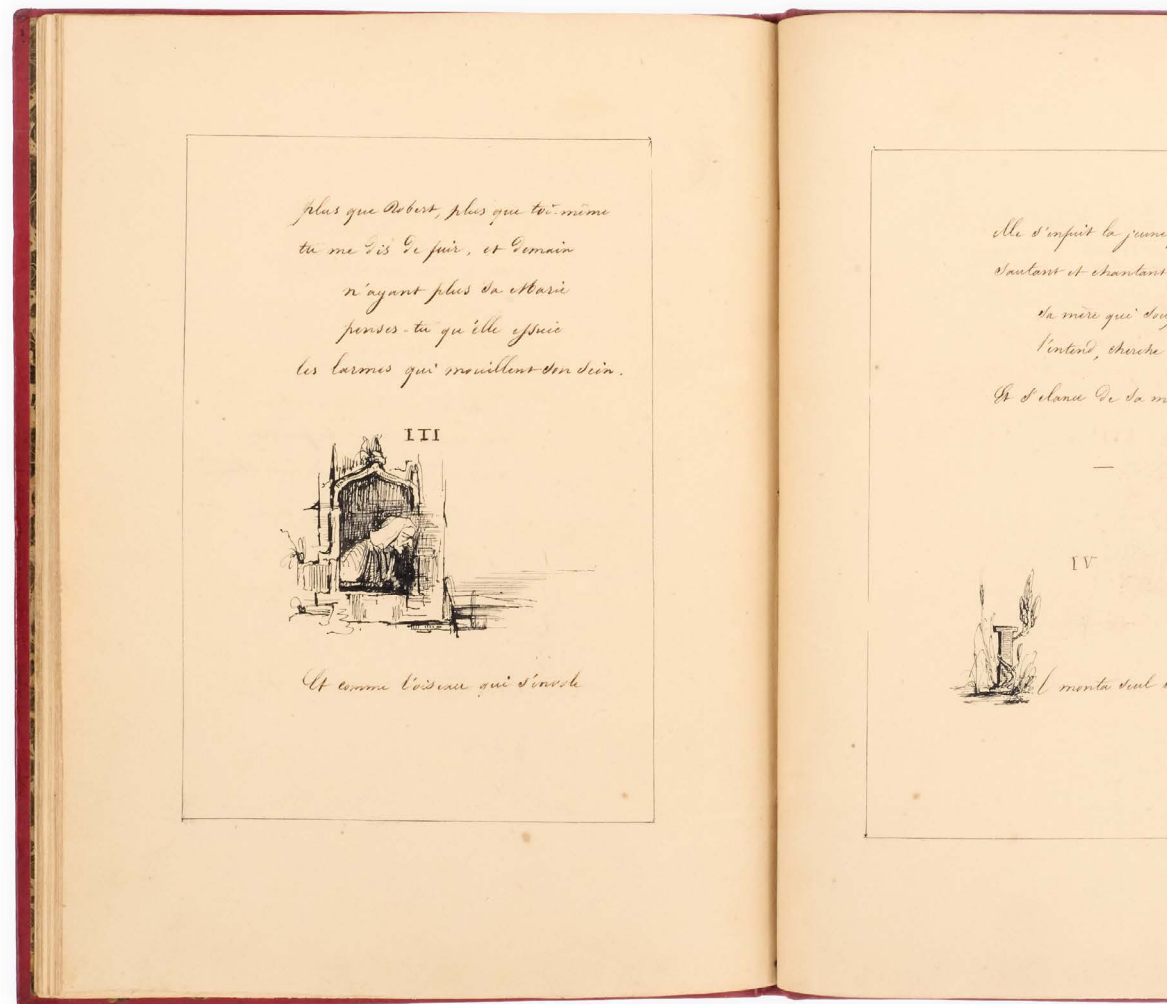 plus que Robert, plus que toi-même
tu me dis de fuir, et demain
n'ayant plus sa Marie
penses-tu qu'elle essuie
les larmes qui mouillent son sein.
III
Et comme l'oiseau qui s'envole
elle s'enfuit la jeune
sautant et chantant
sa mère qui
l'entend, cherche
Et s'elance de sa
IV
Il monta seul